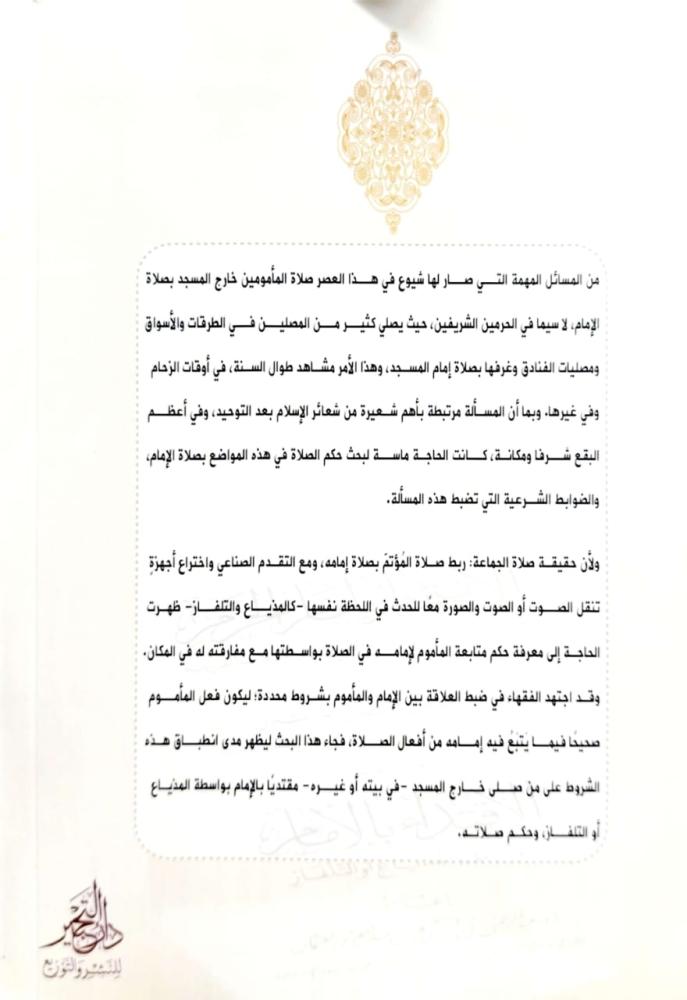 من المسائل المهمة التي صار لها شيوع في هذا العصر صلاة المأمومين خارج المسجد بصلاة
الإمام، لا سيما في الحرمين الشريفين، حيث يصلي كثير من المصلين في الطرقات والأسواق
ومصليات الفنادق وغرفها بصلاة إمام المسجد، وهذا الأمر مشاهد طوال السنة، في أوقات الزحام
وفي غيرها. وبما أن المسألة مرتبطة بأهم شعيرة من شعائر الإسلام بعد التوحيد، وفي أعظم
البقع شرفا ومكانة، كانت الحاجة ماسة لبحث حكم الصلاة في هذه المواضع بصلاة الإمام،
والضوابط الشرعية التي تضبط هذه المسألة.
ولأن حقيقة صلاة الجماعة: ربط صلاة المُؤتمّ بصلاة إمامه، ومع التقدم الصناعي واختراع أجهزةٍ
تنقل الصوت أو الصوت والصورة معًا للحدث في اللحظة نفسها -كالمذياع والتلفاز- ظهرت
الحاجة إلى معرفة حكم متابعة المأموم لإمامه في الصلاة بواسطتها مع مفارقته له في المكان.
وقد اجتهد الفقهاء في ضبط العلاقة بين الإمام والمأموم بشروط محددة؛ ليكون فعل المأموم
صحيحًا فيما يَتبَعُ فيه إمامه من أفعال الصلاة، فجاء هذا البحث ليظهر مدى انطباق هذه
الشروط على من صلى خارج المسجد -في بيته أو غيره- مقتديًا بالإمام بواسطة المذياع
أو التلفاز، وحكم صلاته.
للنشر والتوزيع